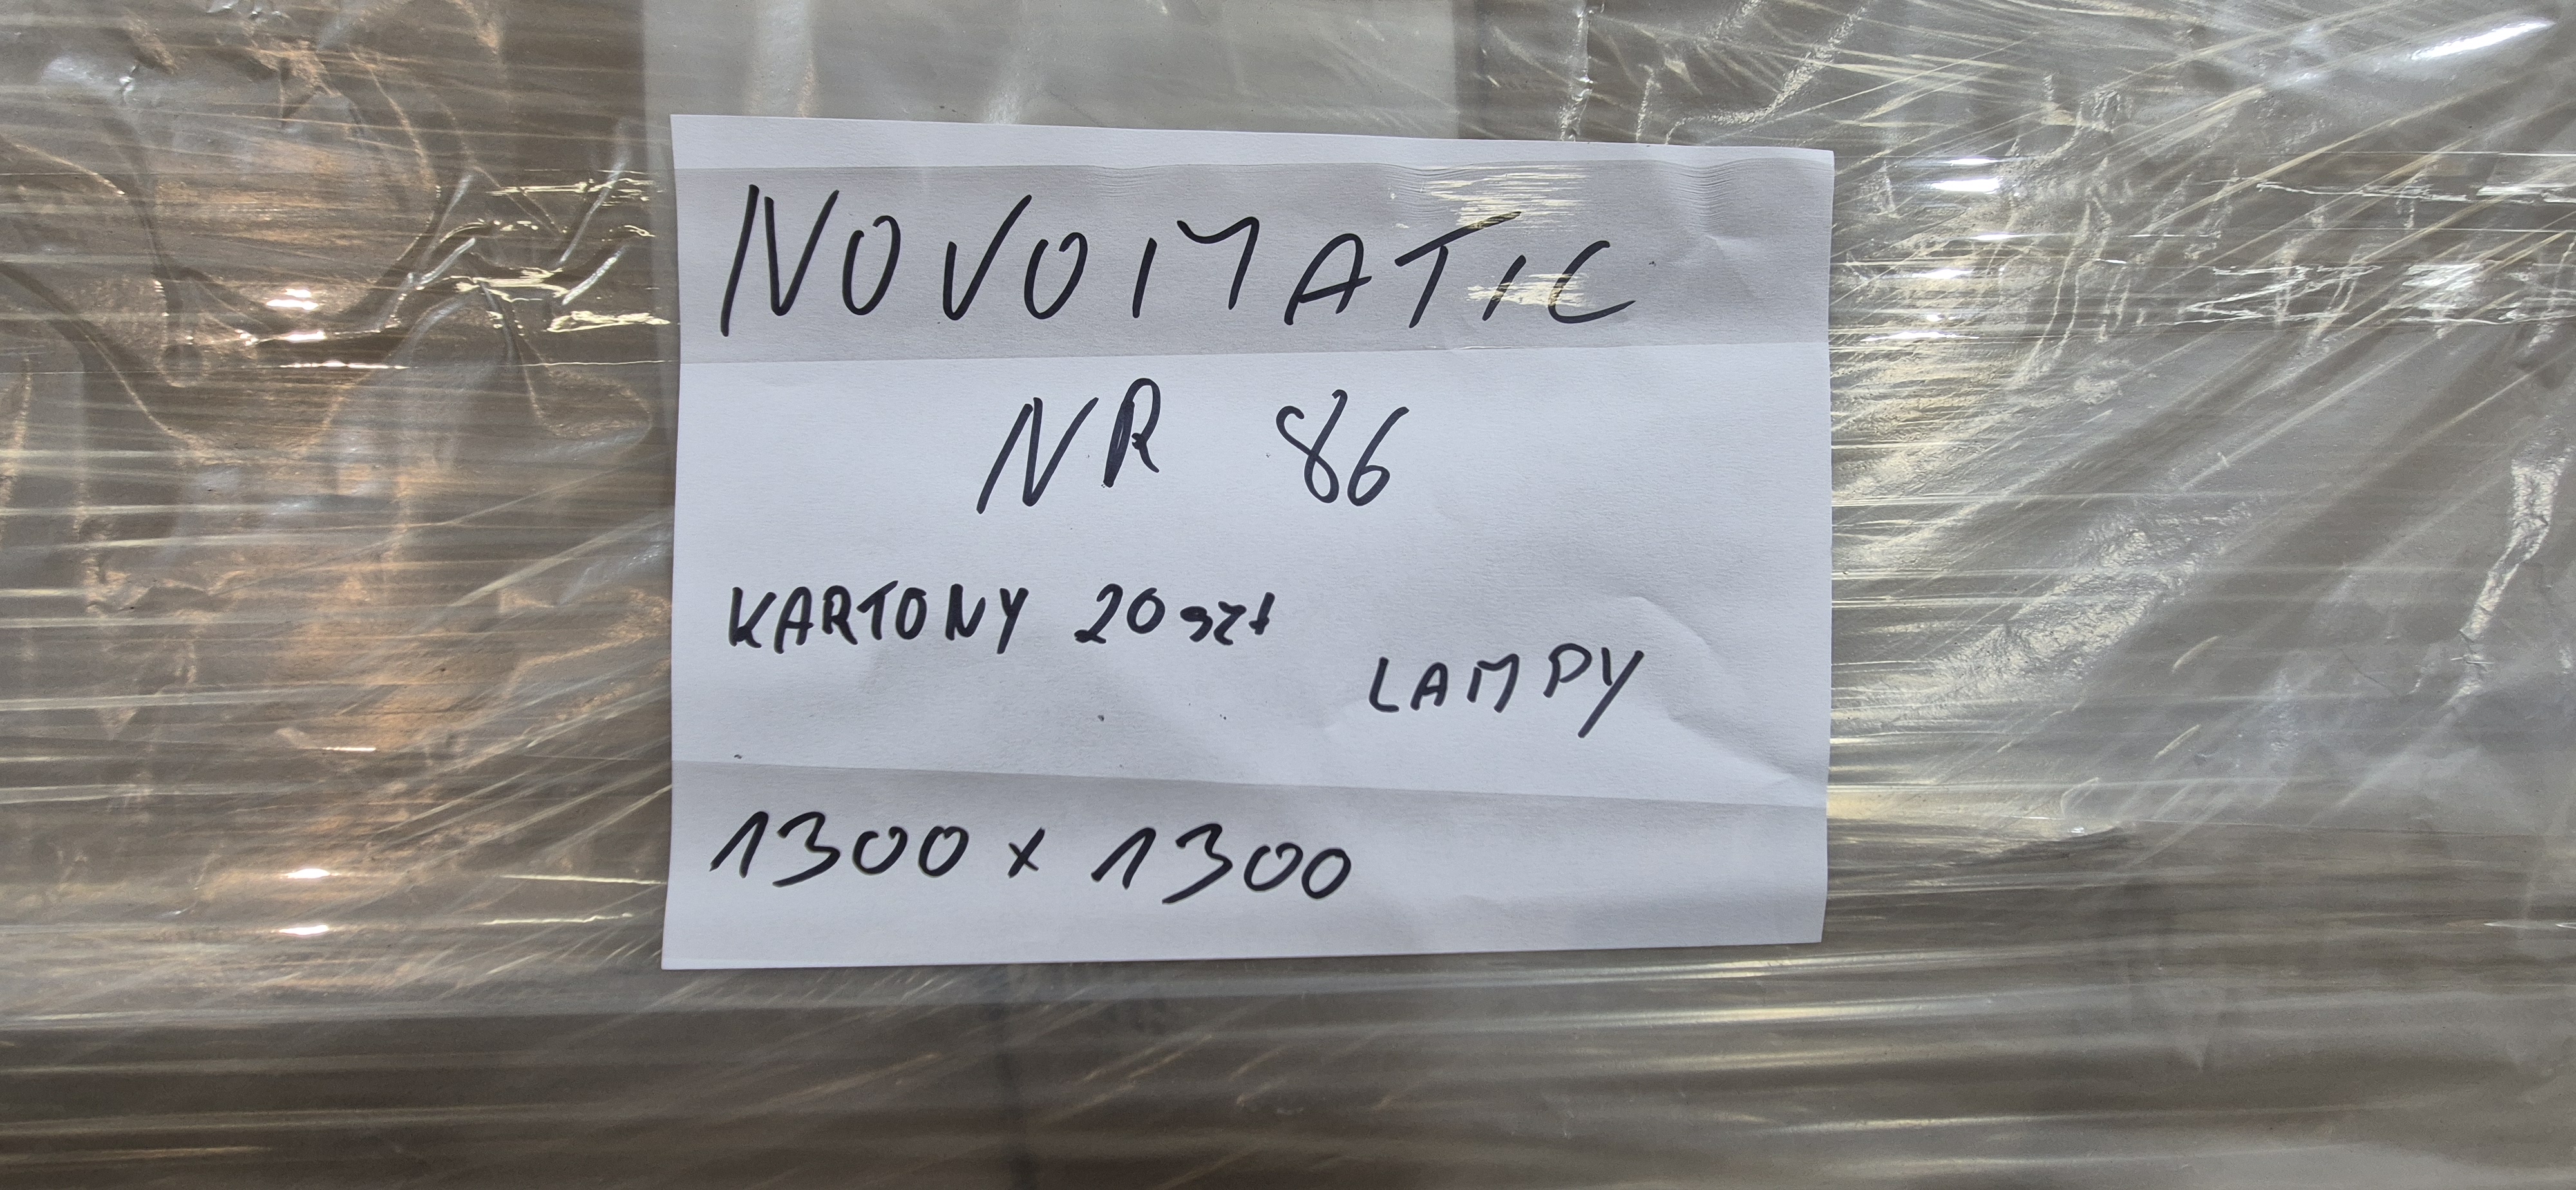 NOVOMATIC
NR 86
KARTONY 20 szt
LAMPY
1300 x 1300